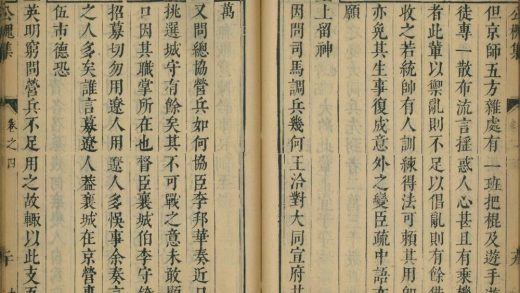 但京師五方雜處有一班把棍及遊手遊
徒專一散布流言搖惑人心甚且有乘機
者此輩以禦亂則不足以倡亂則有餘
收之若統帥有人訓練得法可賴其用如
亦兗其生事復成意外之變臣疏中語亦
願
上留神
因問司馬調兵幾何王洽對大同宣府甚
萬
又問總協營兵如何協臣李邦華奏近日
挑選城守有餘矣其不可戰之意未敢顯
口因其職掌所在也督臣襄城伯李守
招募切勿用遼人用遼人多悮事余奏言
之人多矣誰言募遼人葢襄城在京營專
伍市德恐
英明窮問營兵不足用之故輒以此支吾
公槐集
卷之四